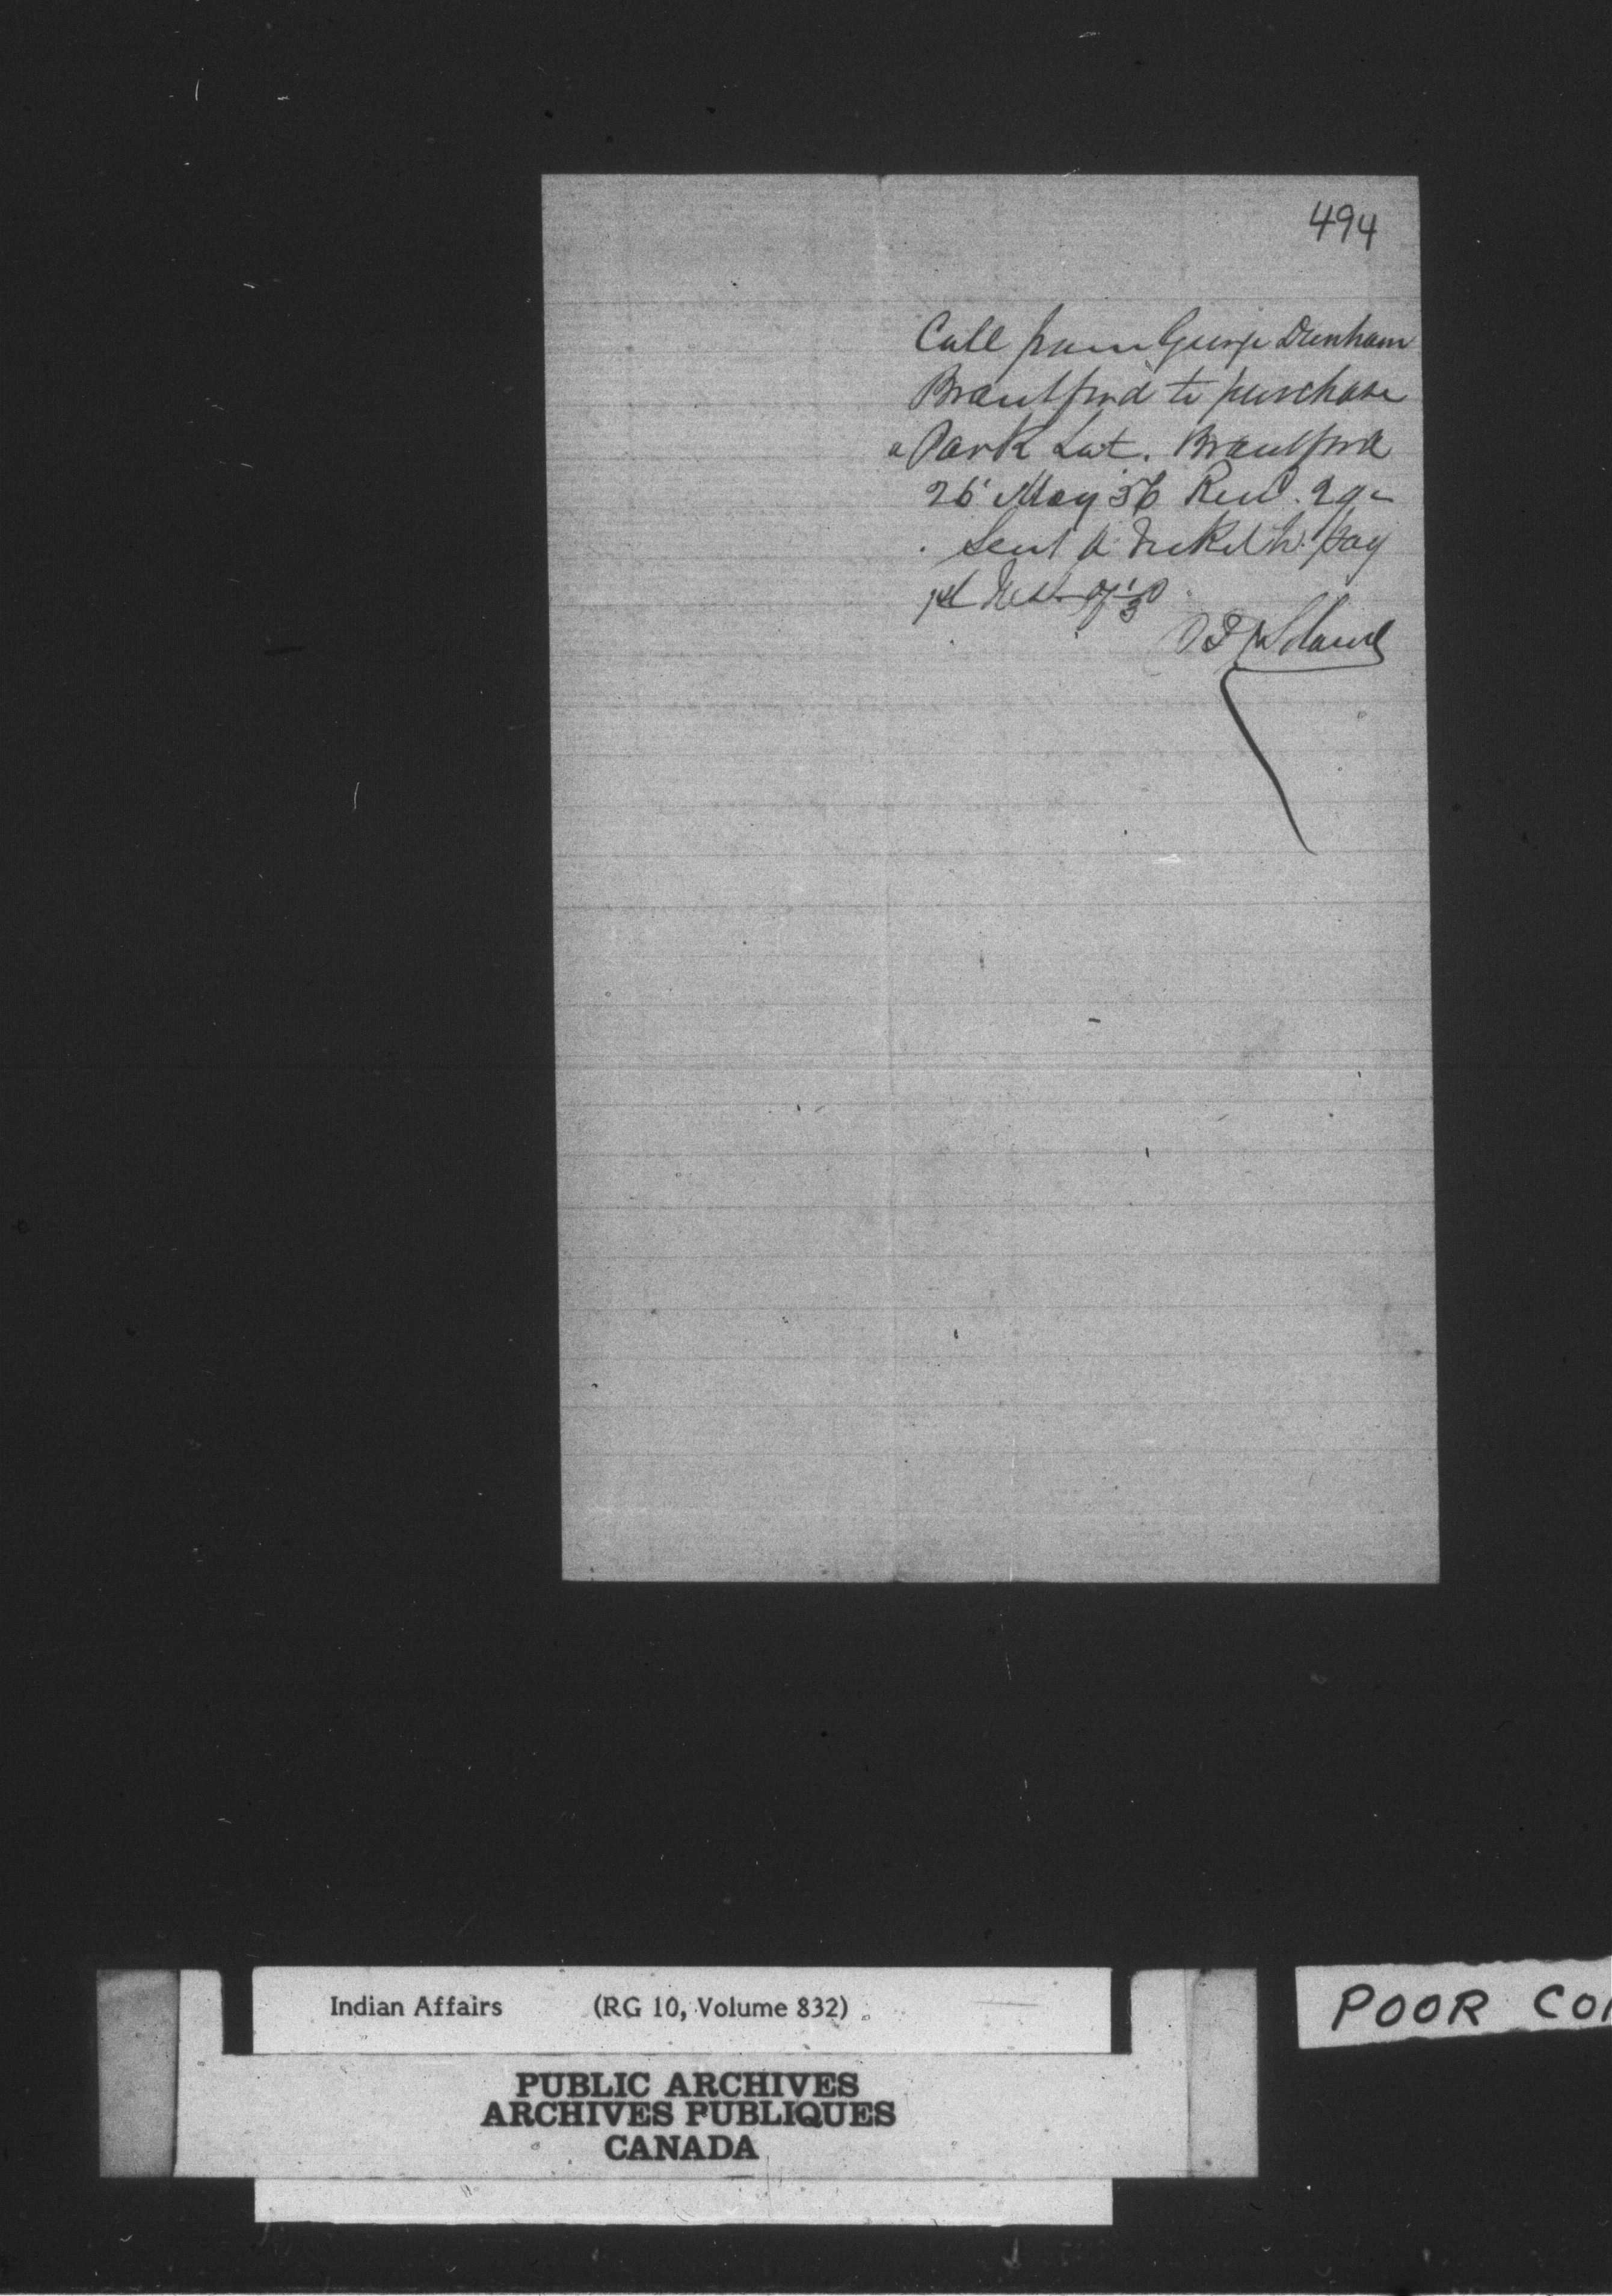 494
Call from George Dunham
Brantford to purchase
a Park Lot. Brantford
26 May 56 Recd. 29
Sent a Ticket to pay
1st Inst. of 1/3
Indian Affairs (RG 10, Volume 832)
PUBLIC ARCHIVES
ARCHIVES PUBLIQUES
CANADA
POOR CO